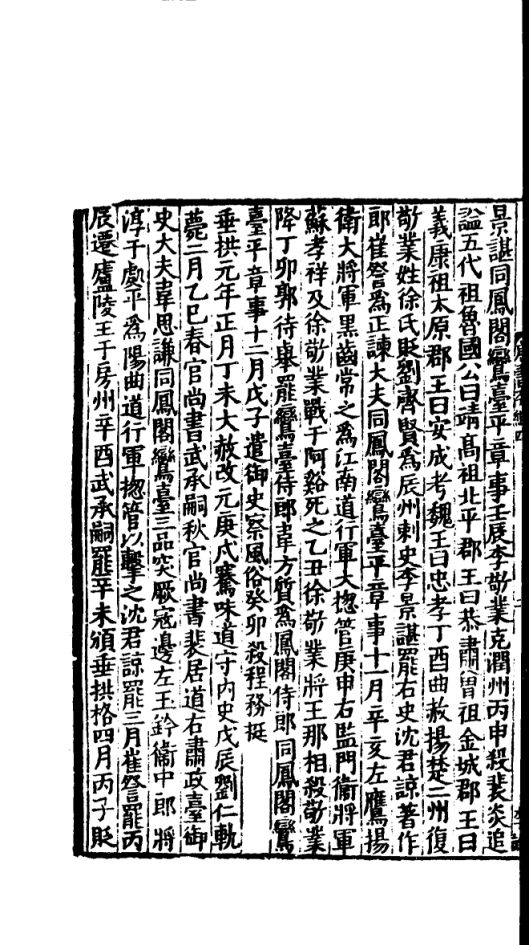 景諶同鳳閣鸞臺平章事壬辰李敬業克潤州丙申殺裴炎追
謚五代祖魯國公曰靖髙祖北平郡王曰恭肅曾祖金城郡王曰
義康祖太原郡王曰安成考魏王曰忠孝丁酉曲赦揚楚二州復
敬業姓徐氏貶劉齊賢爲辰州刺史李景諶罷右史沈君諒著作
郎崔詧爲正諫大夫同鳳閣鸞臺平章事十一月辛亥左鷹揚
衛大將軍黒齒常之爲江南道行軍大揔管庚申右監門衛將軍
蘇孝祥及徐敬業戰于阿谿死之乙丑徐敬業將王那相殺敬業
降丁卯郭待舉罷鸞臺侍郎韋方質爲鳳閣侍郎同鳳閣鸞
臺平章事十二月戊子遣御史察風俗癸卯殺程務挺
垂拱元年正月丁未大赦改元庚戌騫味道守内史戊辰劉仁軌
薨二月乙巳春官尚書武承嗣秋官尚書裴居道右肅政臺御
史大夫韋思謙同鳳閣鸞臺三品突厥寇邊左玉鈐衛中郎將
淳于處平爲陽曲道行軍揔管以擊之沈君諒罷三月崔詧罷丙
辰遷廬陵王于房州辛酉武承嗣罷辛未頒垂拱格四月丙子貶